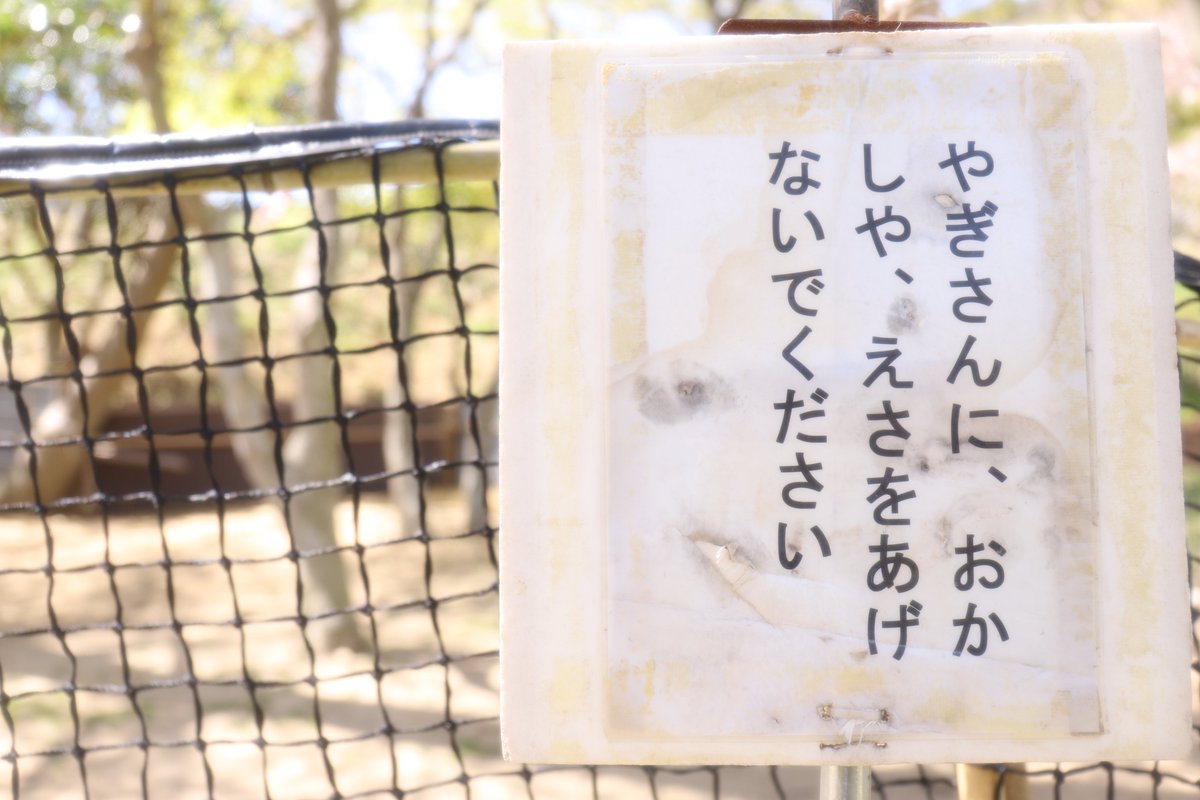 やぎさんに、おか
しや、えさをあげ
ないでください